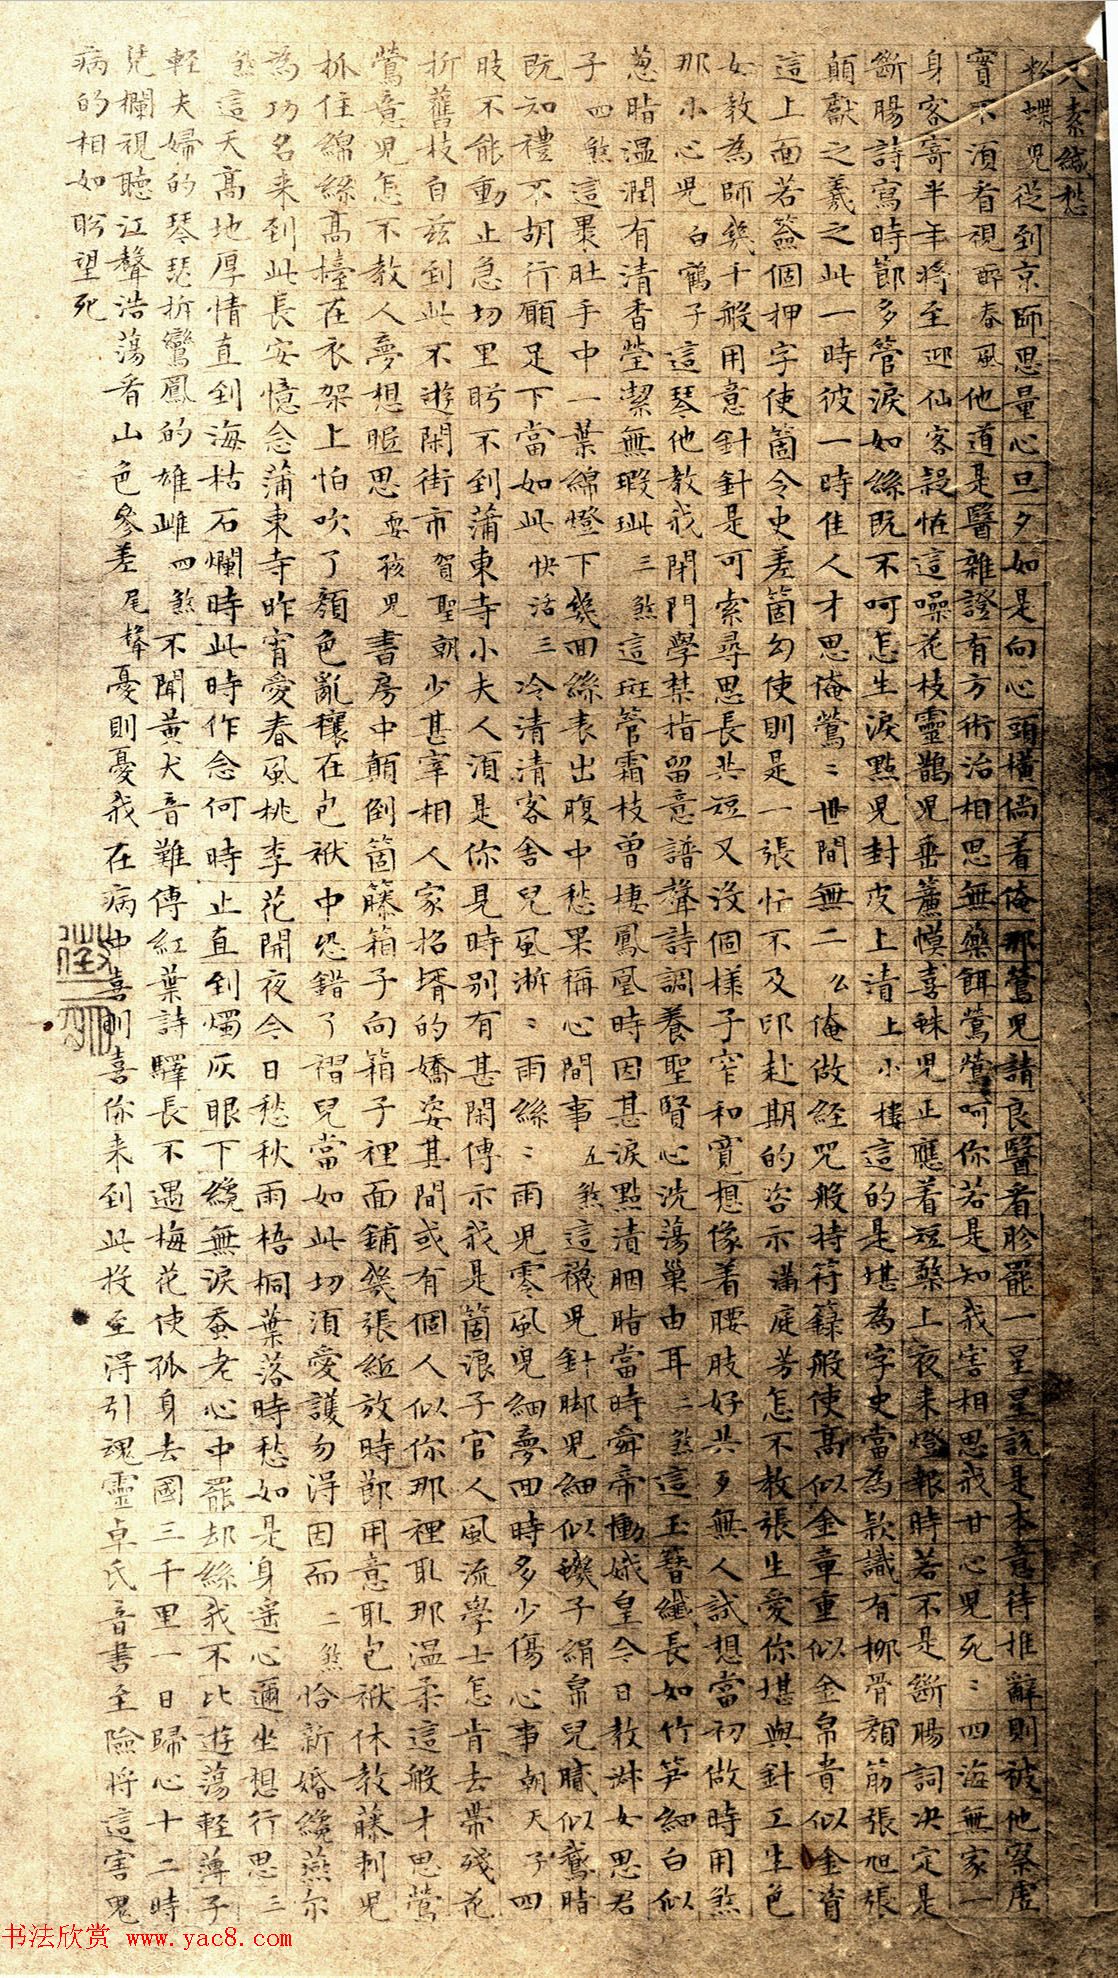 尺素緘愁
粉蝶兒從到京師思量心旦夕如是向心頭橫倘着俺那鶯兒請良醫看胗罷一星星說是本意待推辭則被他察虛
實不須看視醉春風他道是醫雜證有方術治相思無藥餌鶯鶯呵你若是知我害相思我甘心兒死〻四海無家一
身客寄半年將至迎仙客疑怪這噪花枝靈鵲兒垂簾幙喜蛛兒正應着短檠上夜來燈報時若不是斷腸詞決定是
斷腸詩寫時節多管淚如絲既不呵怎生淚點兒封皮上漬上小樓這的是堪為字史當為款識有柳骨顏筋張旭張
顛獻之羲之此一時彼一時佳人才思俺鶯〻世間無二么俺做經咒般持符籙般使高似金章重似金帛貴似金資
這上面若簽個押字使箇令史差箇勾使則是一張忙不及印赴期的咨示滿庭芳怎不教張生愛你堪與針工生色
女教為師幾千般用意針針是可索尋思長共短又沒個樣子窄和寬想像着腰肢好共歹無人試想當初做時用煞
那小心兒白鶴子這琴他教我閉門學禁指留意譜聲詩調養聖賢心洗蕩巢由耳二煞這玉簪纖長如竹笋細白似
葱脂温潤有清香瑩潔無瑕玼三煞這斑管霜枝曾棲鳳凰時因甚淚點漬胭脂當時舜帝慟娥皇今日教淋女思君
子四煞這裹肚手中一葉綿燈下幾回絲表出腹中愁果稱心間事五煞這襪兒針脚兒細似蟣子絹帛兒膩似鵞脂
既知禮不胡行願足下當如此快活三冷清清客舍兒風淅〻雨絲〻雨兒零風兒細夢回時多少傷心事朝天子四
肢不能動止急切里盻不到蒲東寺小夫人須是你見時別有甚閑傳示我是箇浪子官人風流學士怎肯去帶殘花
折舊枝自兹到此不遊閑街市賀聖朝少甚宰相人家招壻的嬌姿其間或有個人似你那裡取那温柔這般才思鶯
鶯意兒怎不教人夢想眠思耍孩兒書房中顛倒箇籐箱子向箱子裡面鋪幾張紙放時節用意取包袱休教藤刺兒
抓住綿絲高檯在衣架上怕吹了顏色亂穰在包袱中恐錯了褶兒當如此切須愛護勿得因而二煞恰新婚纔燕尔
為功名来到此長安憶念蒲東寺昨宵愛春風桃李花開夜今日愁秋雨梧桐葉落時愁如是身遥心邇坐想行思三
煞這天高地厚情直到海枯石爛時此時作念何時止直到燭灰眼下纔無淚蚕老心中罷却絲我不比遊蕩輕薄子
輕夫婦的琴瑟折鸞鳳的雄雌四煞不聞黃犬音難傳紅葉詩驛長不遇梅花使孤身去國三千里一日歸心十二時
凭欄視聽江聲浩蕩看山色參差尾聲憂則憂我在病中喜則喜你来到此投至得引魂靈卓氏音書至險將這害鬼
病的相如盻望死
书法欣赏 www.yac8.com